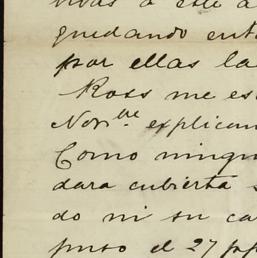 vivas a este a
quedando ent
por ellas la
Ross me es
Nov.bre explican
Como ningu
dara cubierta s
do ni su ca
puso el 27 pp